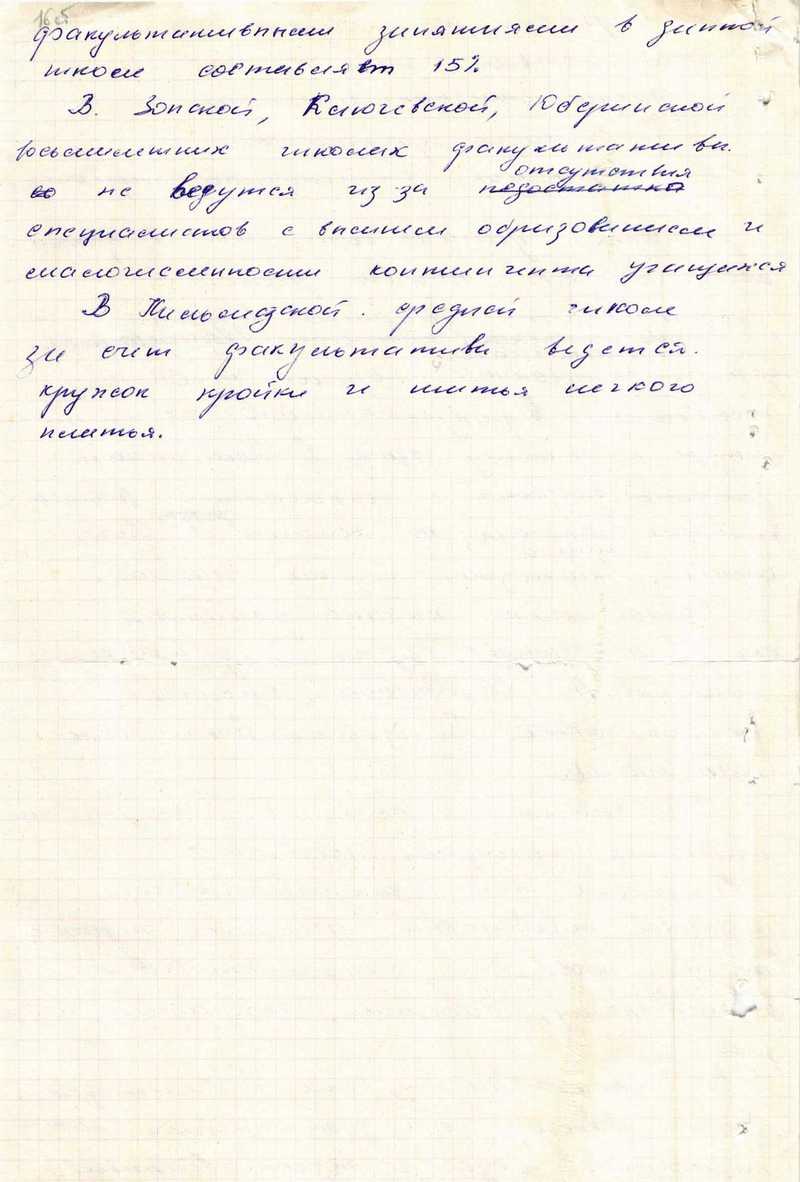 16 об
факультативными занятиями в данной
школе составляет 15%
В. Зонской, Ключевской, Юберинской
восьмилетних школах факультативы.
не ведутся из-за отсутствия
специалистов с высшим образованием и
малочисленности контингента учащихся
В Кильмезской. средней школе
за счет факультатива ведется.
кружок кройки и шитья легкого
платья.